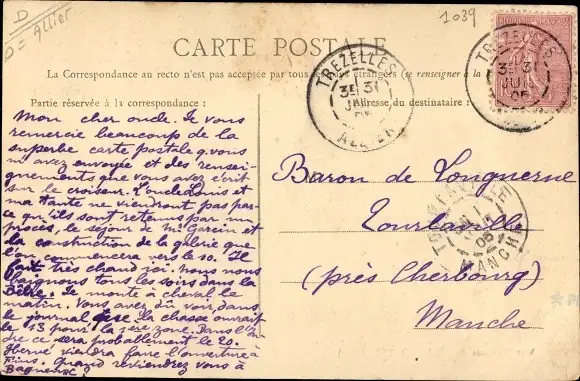 D
D = Allier
1039
CARTE POSTALE
La Correspondance au recto n'est pas acceptée par tous les pays étrangers (se renseigner à la
Partie réservée à la correspondance :
Adresse du destinataire :
TREZELLES
3E 31
JUIL
05
ALLIER
TREZELLES
3E 31
JUIL
05
Mon cher oncle. Je vous
remercie beaucoup de la
superbe carte postale q. vous
m'avez envoyée et des rensei-
gnements que vous avez écrit
sur le croiseur. L'oncle Louis et
ma tante ne viendront pas par-
ce qu'ils sont retenus par un
procès, le séjour de Mr Garcin et
la construction de la galerie que
l'on commencera vers le 10. Il
fait très chaud ici. Nous nous
baignons tous les soirs dans la
Bèbre. Je monte à cheval le
matin. Vous avez dû voir dans
le journal que la chasse ouvrait
le 13 pour la 1ère zone. Dans l'In-
dre ce sera probablement le 20.
viendra faire l'ouverture à
Quand reviendrez vous à
Bagneux ?
Baron de Longuerue
Tourlaville
(près Cherbourg)
Manche
TOURLAVILLE
05
MANCHE